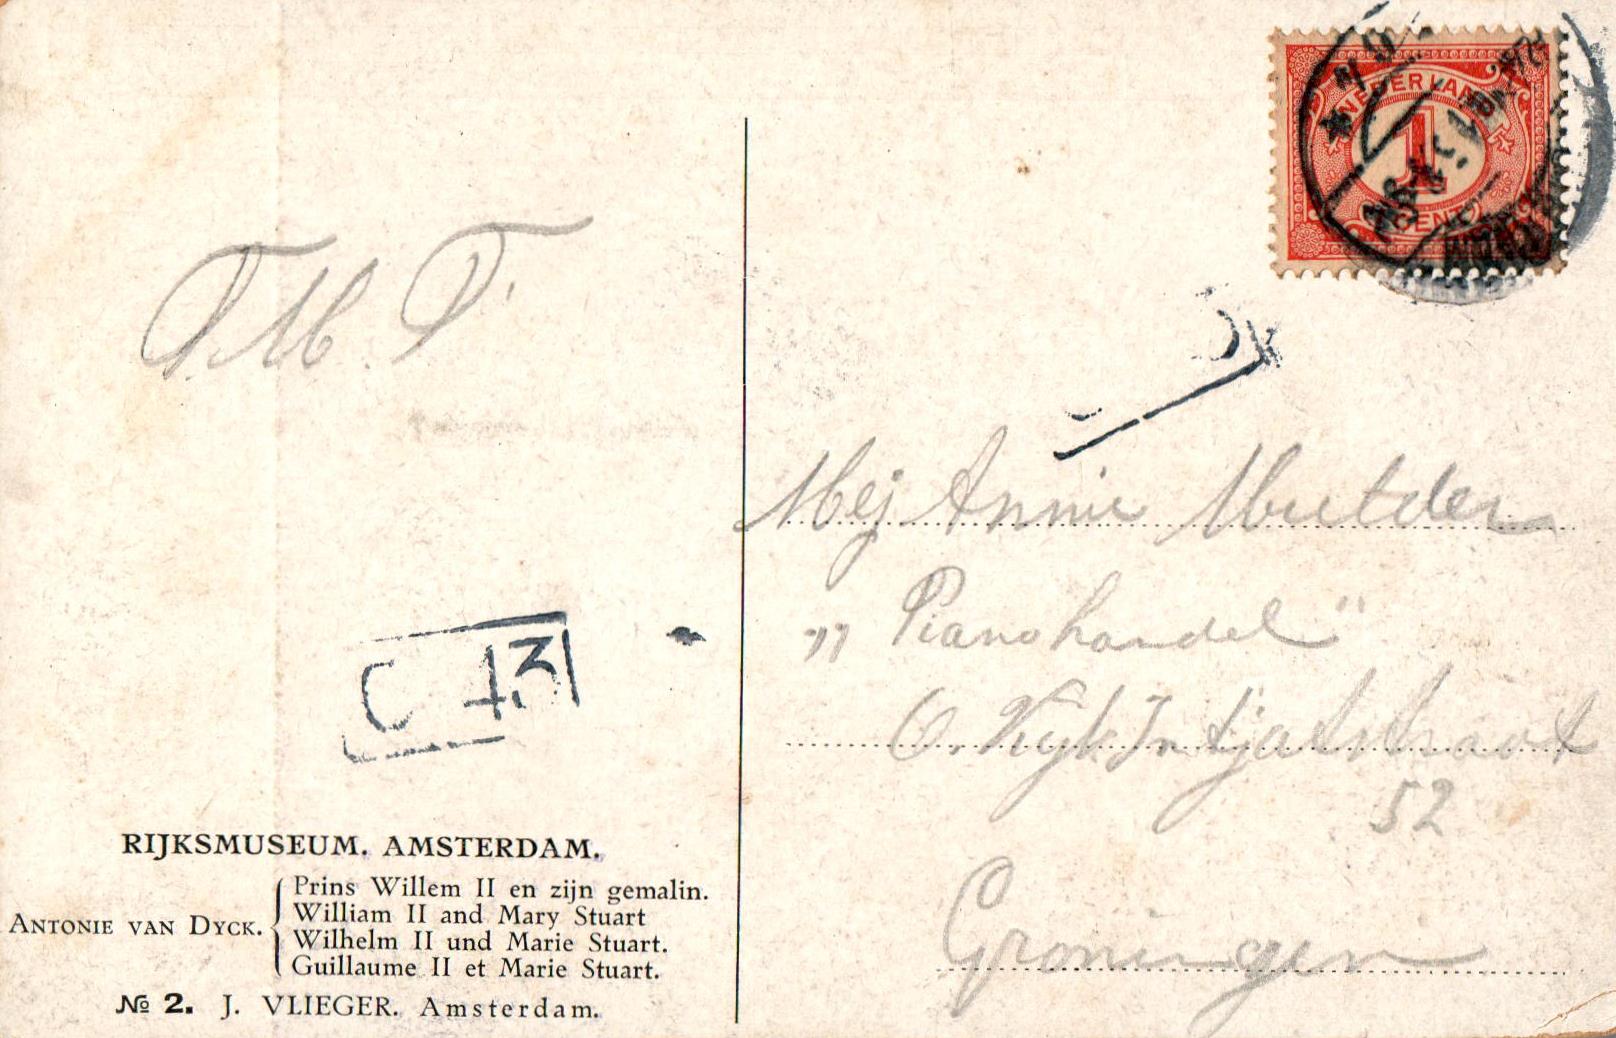 NEDERLAND
1
CENT
T.M.T.
Mej Annie Mulder
„ Pianohandel "
O. Kijk In tjatstraat
52
Groningen
C 43
RIJKSMUSEUM. AMSTERDAM.
ANTONIE VAN DYCK.
Prins Willem II en zijn gemalin.
William II and Mary Stuart
Wilhelm II und Marie Stuart.
Guillaume II et Marie Stuart.
№ 2. J. VLIEGER. Amsterdam.